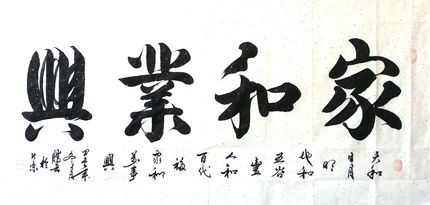 家和業興
天和
日月
明
地和
五谷
豐
人和
百代
福
家和
萬事
興
甲午年
於
北京